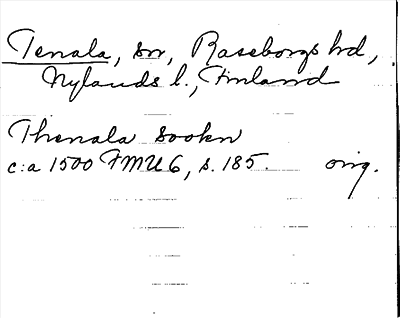 Tenala, sn, Raseborgs hd,
Nylands l., Finland
Thenala sookn
c:a 1500 FMU 6, s. 185. orig.